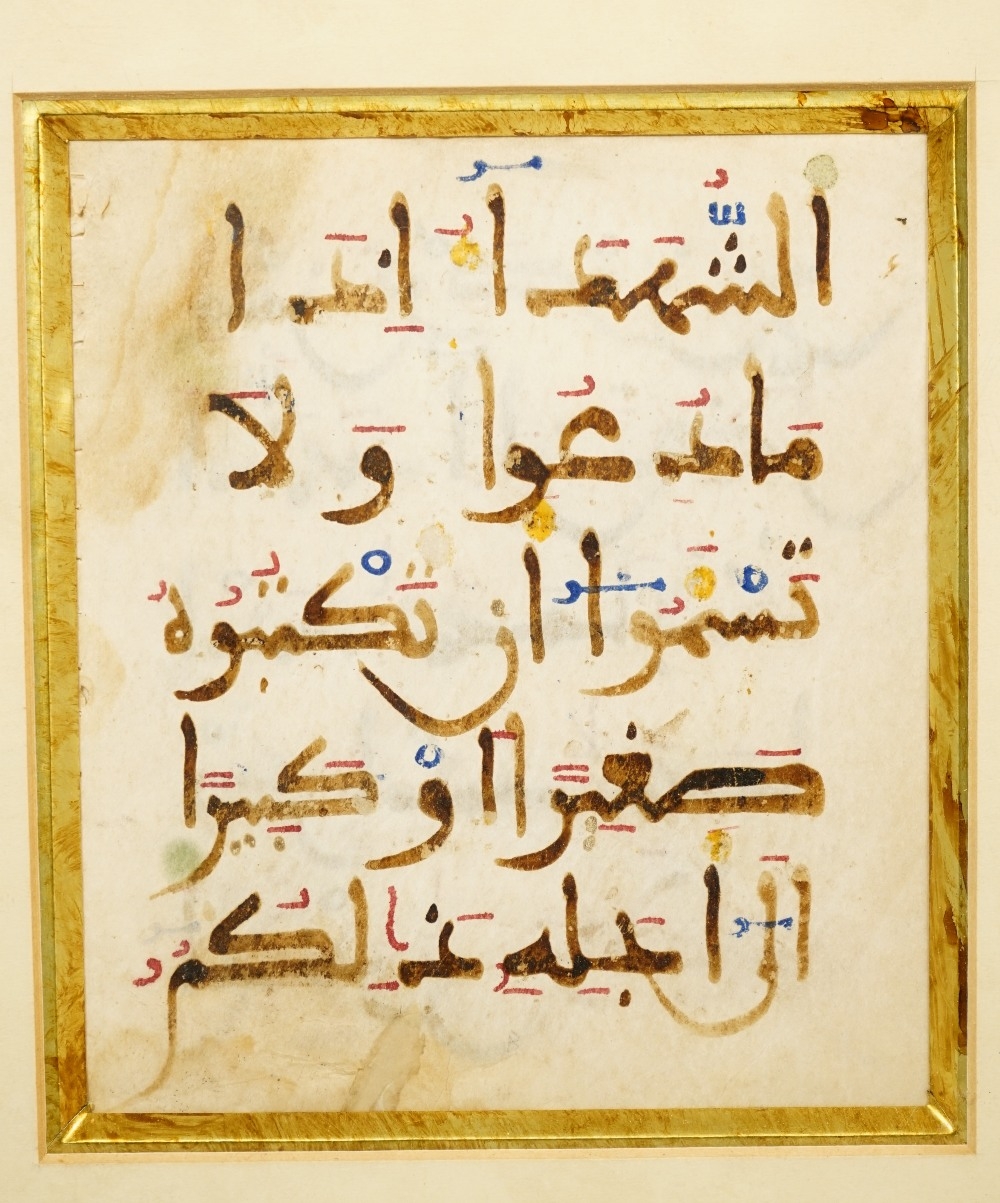 الشُّهَدَآءُ إِذَا
مَا دُعُوا وَلَا
تَسْـَٔمُوٓا أَن تَكْتُبُوهُ
صَغِيرًا أَوْ كَبِيرًا
إِلَىٰٓ أَجَلِهِۦ ذَٰلِكُمُ